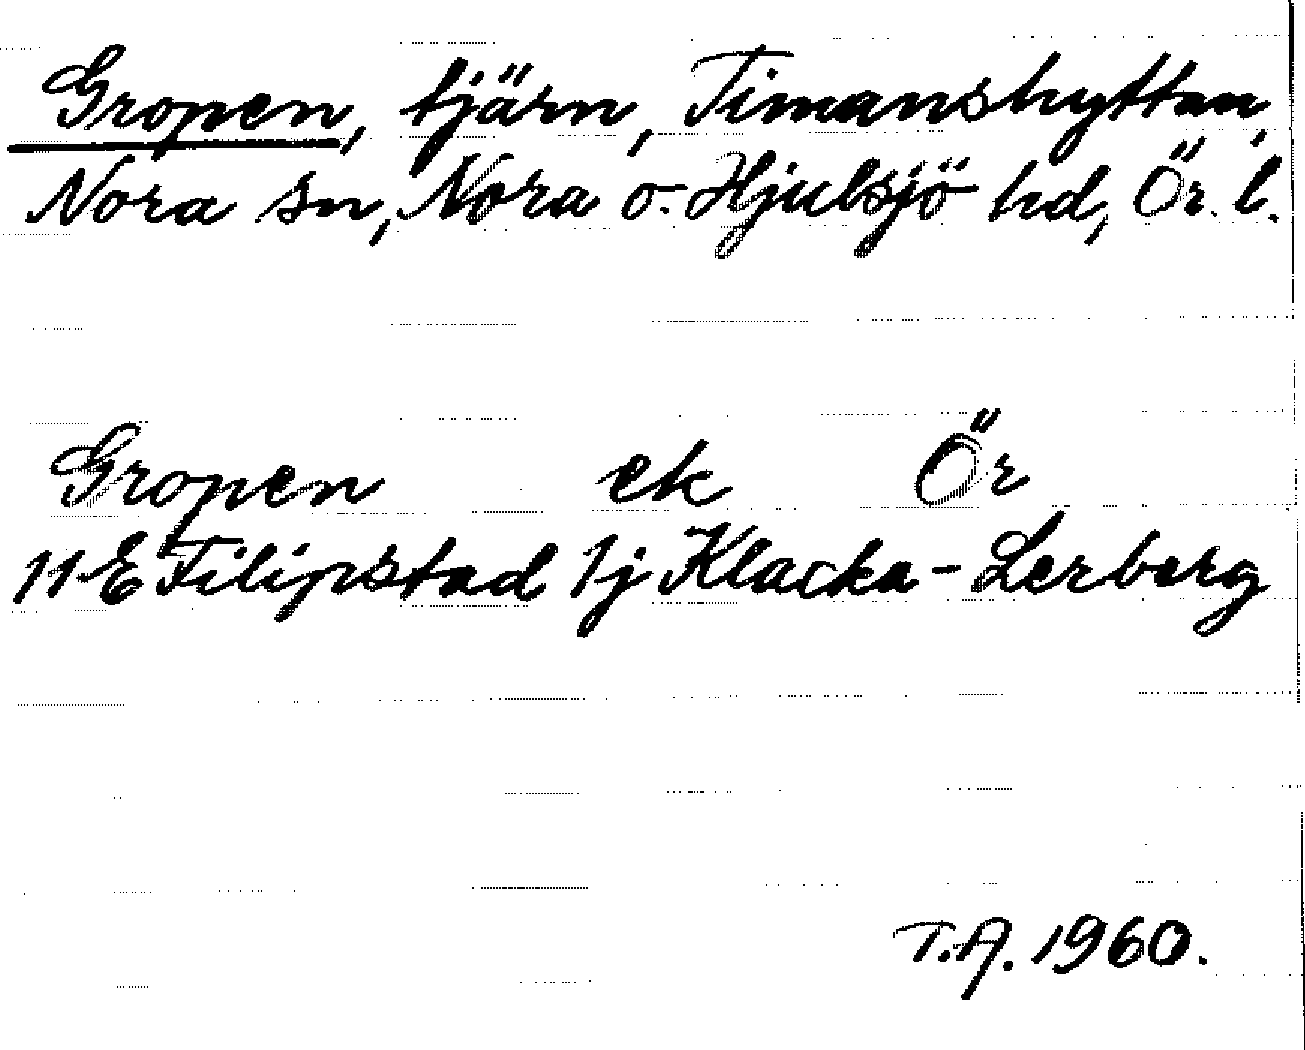 Gropen, tjärn, Timanshyttan,
Nora sn, Nora o. Hjulsjö hd, Ör. l.
Gropen ek Ör
11 E Filipstad 1j Klacka-Lerberg
T.A. 1960.